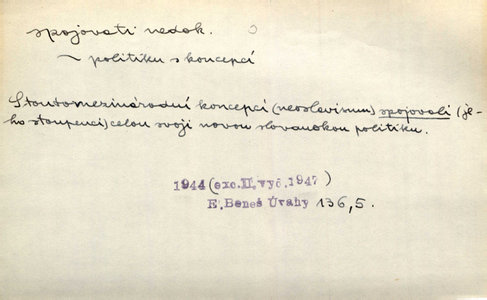 spojovati nedok.
~ politiku s koncepcí
S touto mezinárodní koncepcí (neoslavismu) spojovali (je-
ho stoupenci) celou svoji novou slovanskou politiku.
1944 (exc. II. vyd. 1947)
E. Beneš Úvahy 136,5.